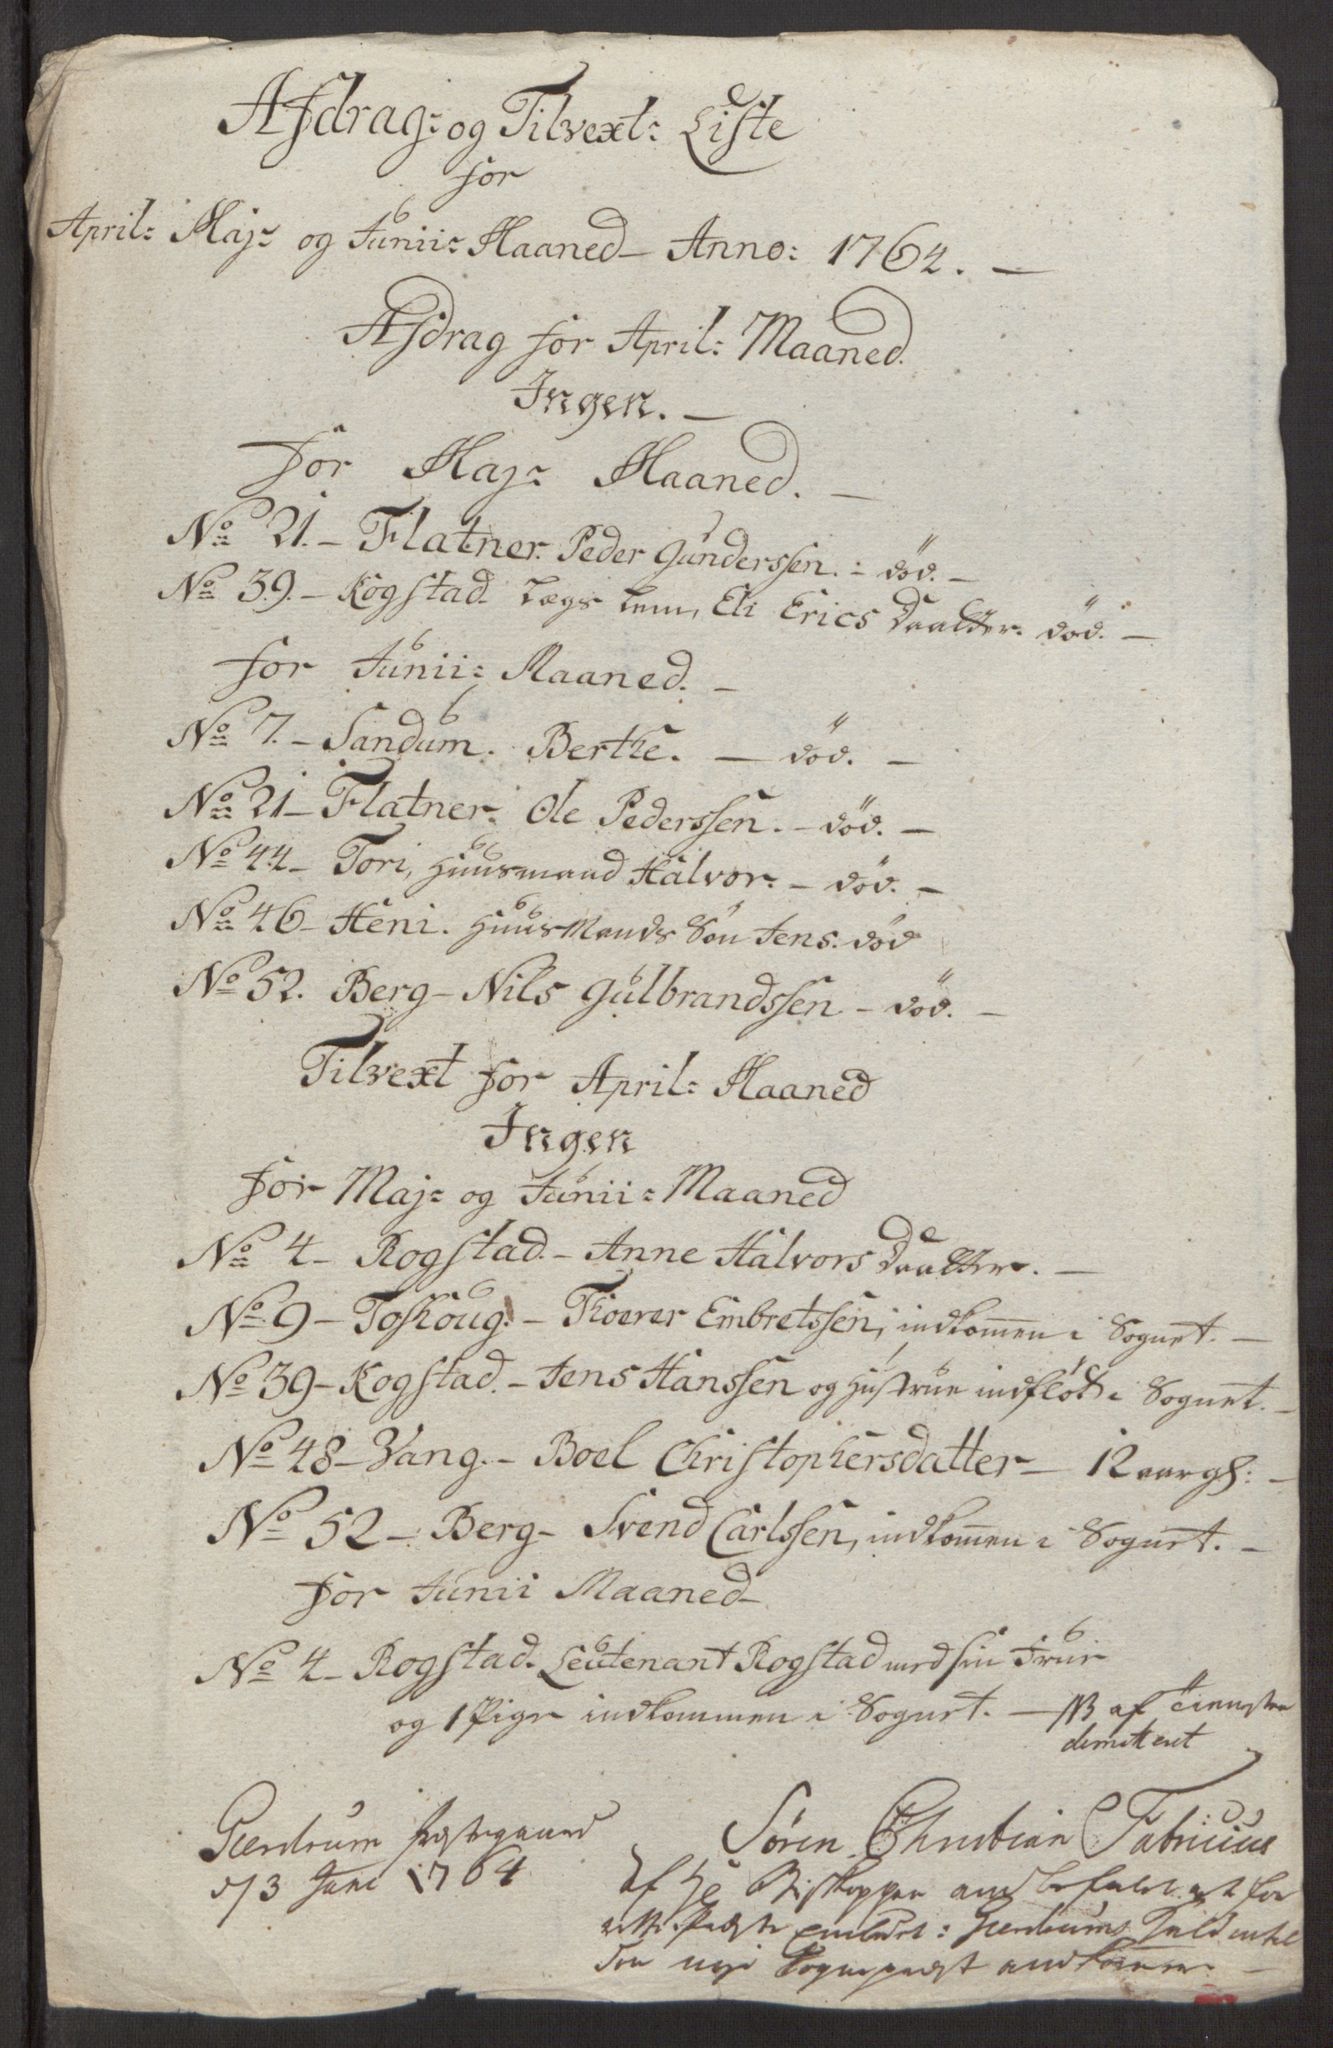 Afdrag: og Tilvext: Liste
for
April: Maj: og Junii: Maaned – Anno: 1764. –
Afdrag for April: Maaned.
Ingen. –
for Maj: Maaned. –
No 21. – Flatner. Peder Gunderssen. : død. –
No 39. – Kogstad. Lægs Lem, Eli Erics Daatter. død. –
for Junii: Maaned. –
No 7. – Sandum. Berthe. – død. –
No 21 – Flatner. Ole Pederssen. – død. –
No 44 – Tori, Huusmand Halvor. – død. –
No 46 – Heni. Huus Mands Søn Jens. død
No 52. Berg – Nils Gulbrandssen – død. –
Tilvext for April: Maaned
Ingen
for Maj: og Junii: Maaned
No 4 – Rogstad. – Anne Halvors Daatter. –
No 9 – Toskoug. – Thoerer Embretssen, indkommen i Sognet. –
No 39 – Kogstad. – Jens Hanssen og Hustrue indfløt i Sognet. –
No 48 – Vang. – Boel Christophersdatter – 12 aar gl: –
No 52 – Berg – Svend Carlssen, indkommen i Sognet. –
for Junii Maaned –
No 4 – Rogstad. Leutenant Rogstad med sin Frue
og 1 Pige indkommen i Sognet. – NB af Tienesten
dimittert
Gierdrum Præstegaard
d/3 Juni 1764
Søren Christian Fabricius
Af Hr Biskoppen anbefalet at for
rette Præste Embdet i Gierdrums Gield indtil
den nye Sognepræst ankommer –